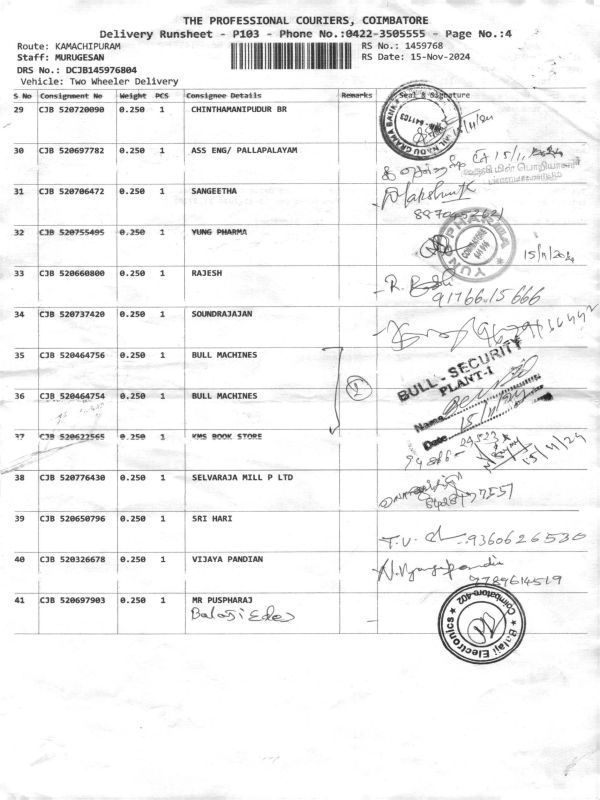 THE PROFESSIONAL COURIERS, COIMBATORE
Delivery Runsheet - P103 - Phone No.:0422-3505555 - Page No.:4
Route: KAMACHIPURAM RS No.: 1459768
Staff: MURUGESAN RS Date: 15-Nov-2024
DRS No.: DCJB145976804
Vehicle: Two Wheeler Delivery
S No Consignment No Weight PCS Consignee Details Remarks Seal & Signature
29 CJB 520720090 0.250 1 CHINTHAMANIPUDUR BR
30 CJB 520697782 0.250 1 ASS ENG/ PALLAPALAYAM
31 CJB 520706472 0.250 1 SANGEETHA
32 CJB 520755495 0.250 1 YUNG PHARMA YUNG PHARMA
15/11/2024
33 CJB 520660800 0.250 1 RAJESH
9176615666
34 CJB 520737420 0.250 1 SOUNDRAJAJAN
35 CJB 520464756 0.250 1 BULL MACHINES
BULL - SECURITY
PLANT-1
36 CJB 520464754 0.250 1 BULL MACHINES 2
Name
Date 15/11/24
37 CJB 520622565 0.250 1 KMS BOOK STORE
15/11/24
38 CJB 520776430 0.250 1 SELVARAJA MILL P LTD
39 CJB 520650796 0.250 1 SRI HARI
9360626530
40 CJB 520326678 0.250 1 VIJAYA PANDIAN
7789614519
41 CJB 520697903 0.250 1 MR PUSPHARAJ
Balaji Electronics
Coimbatore-402